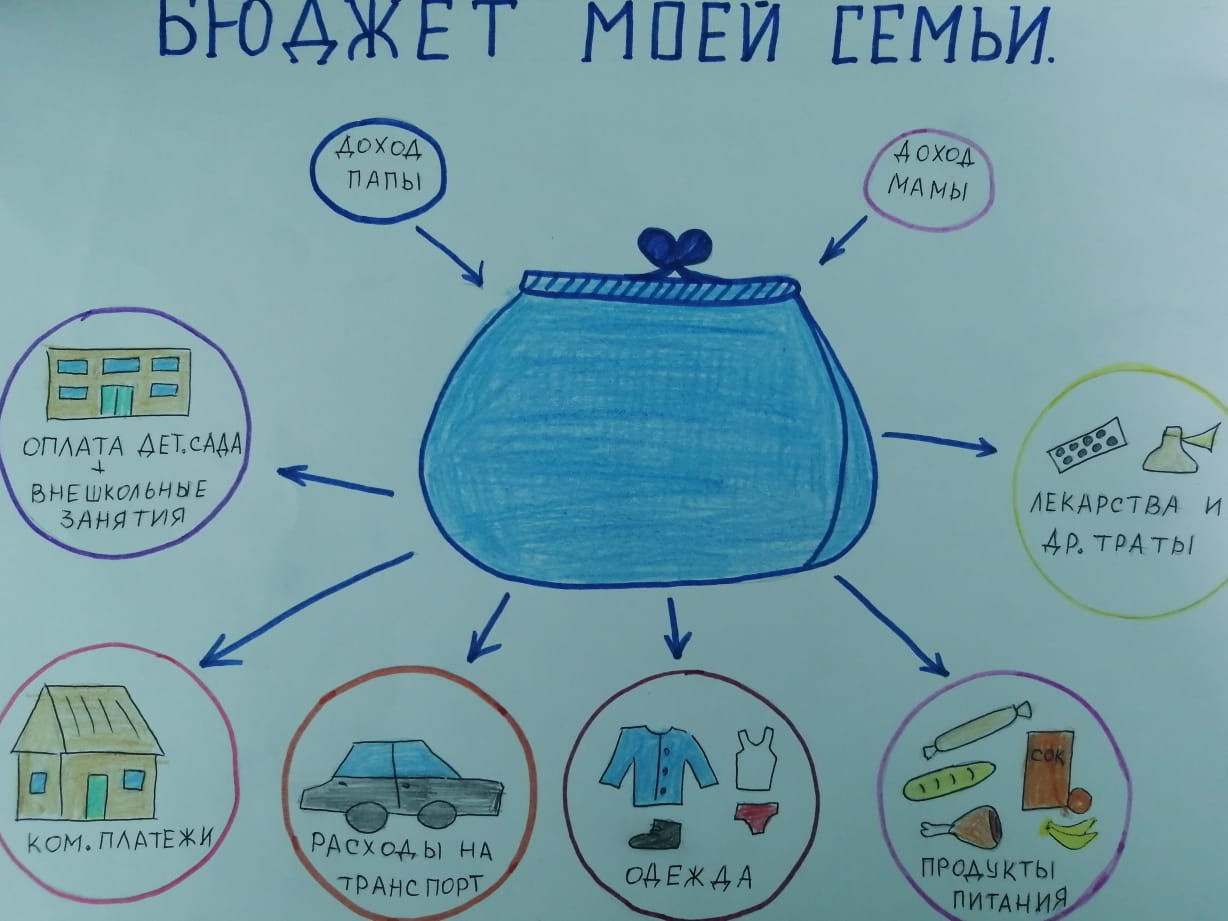 БЮДЖЕТ МОЕЙ СЕМЬИ.
ДОХОД
ПАПЫ
ДОХОД
МАМЫ
ОПЛАТА ДЕТ.САДА
+
ВНЕШКОЛЬНЫЕ
ЗАНЯТИЯ
ЛЕКАРСТВА И
ДР. ТРАТЫ
КОМ. ПЛАТЕЖИ
РАСХОДЫ НА
ТРАНСПОРТ
ОДЕЖДА
СОК
ПРОДУКТЫ
ПИТАНИЯ